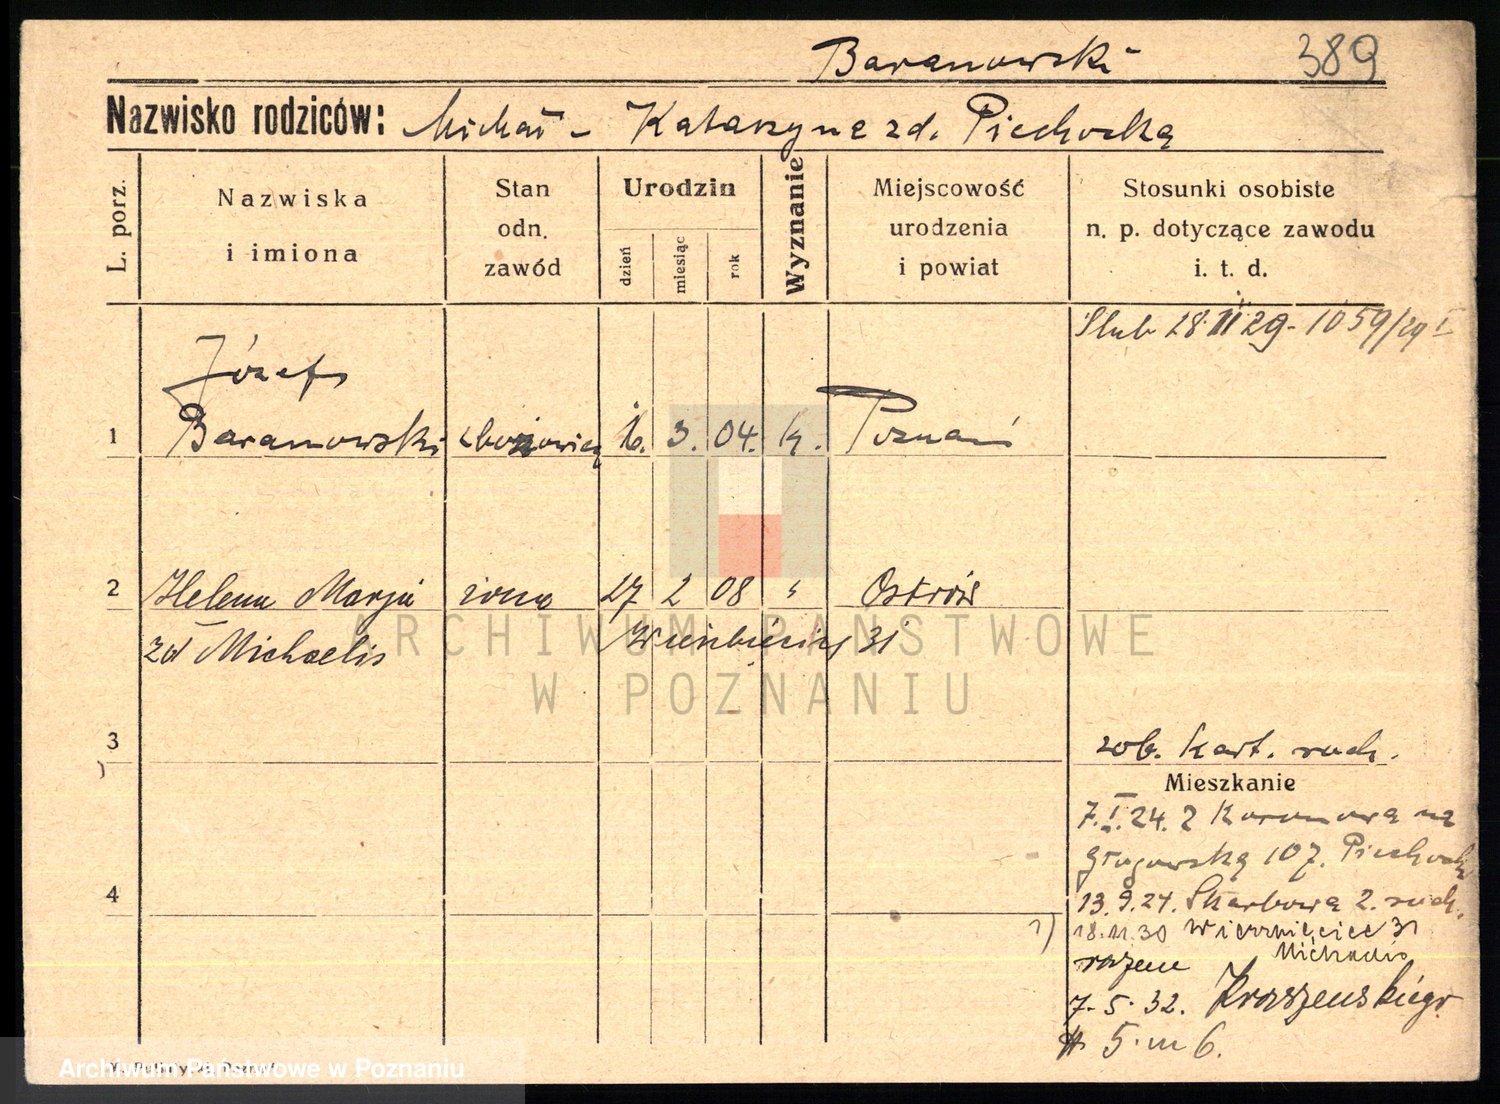 Baranowski 389
Nazwisko rodziców: Michał - Katarzyna zd. Piechocka
L. porz.
Nazwiska i imiona
Stan odn. zawód
Urodzin
dzień
miesiąc
rok
Wyznanie
Miejscowość urodzenia i powiat
Stosunki osobiste n. p. dotyczące zawodu i. t. d.
Ślub 28.II 29 - 1059/29 I
Józef
1 Baranowski 16. 3. 04. k. Poznań
2 Helena Marja żona 27 2 08 " Ostrów
zd Michaelis 31
ARCHIWUM PAŃSTWOWE
W POZNANIU
3
zob. kart. ruch.
Mieszkanie
7.I.24. z Koronowa na
Głogowską 107. Piechocka
4
13.9.24. Skarbowa 2. ruch.
1) 18.11.30 Wierzbięcice 31
Michaelis
razem
7.5.32. Kraszewskiego
5. m 6.
Archiwum Państwowe w Poznaniu